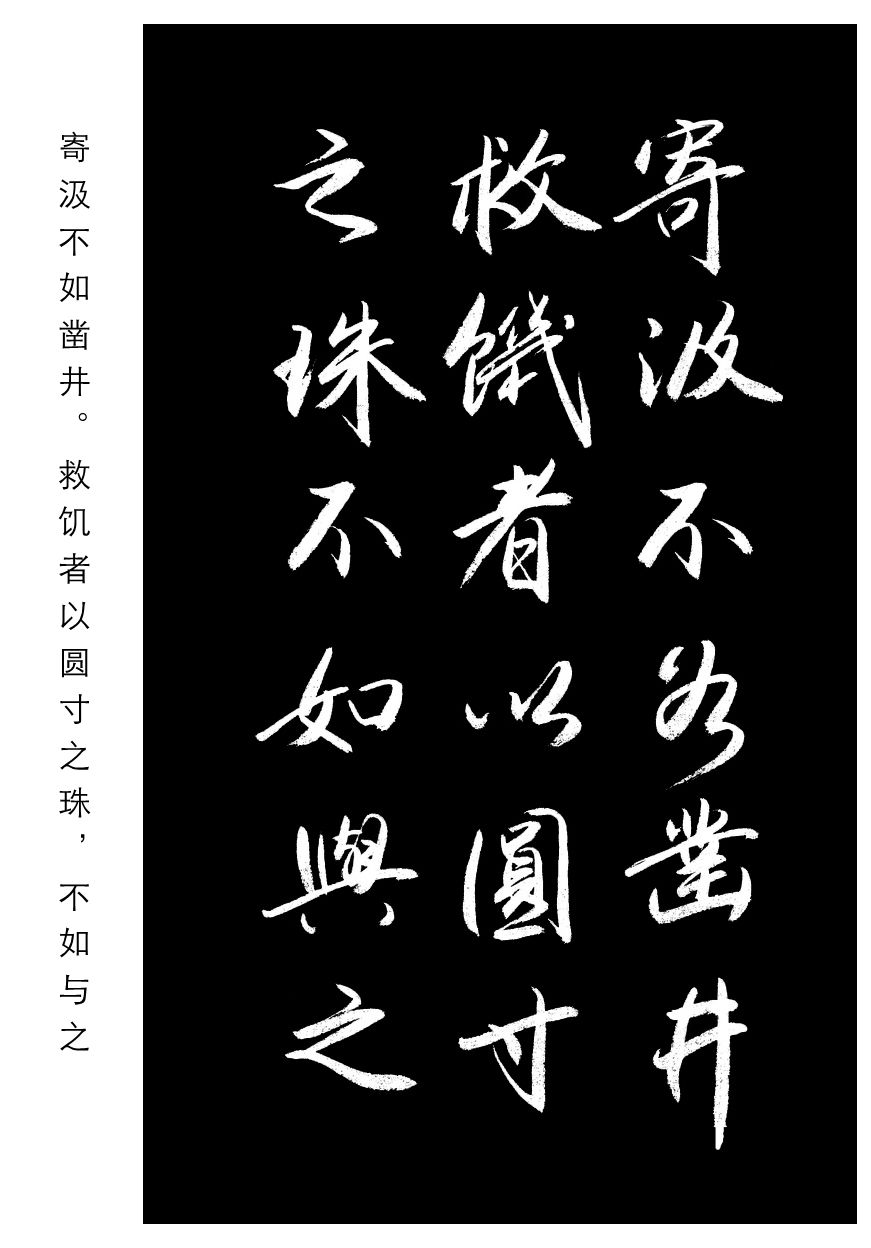 寄汲不若凿井
救饑者以圓寸
之珠不如與之
寄汲不如凿井。救饥者以圆寸之珠，不如与之